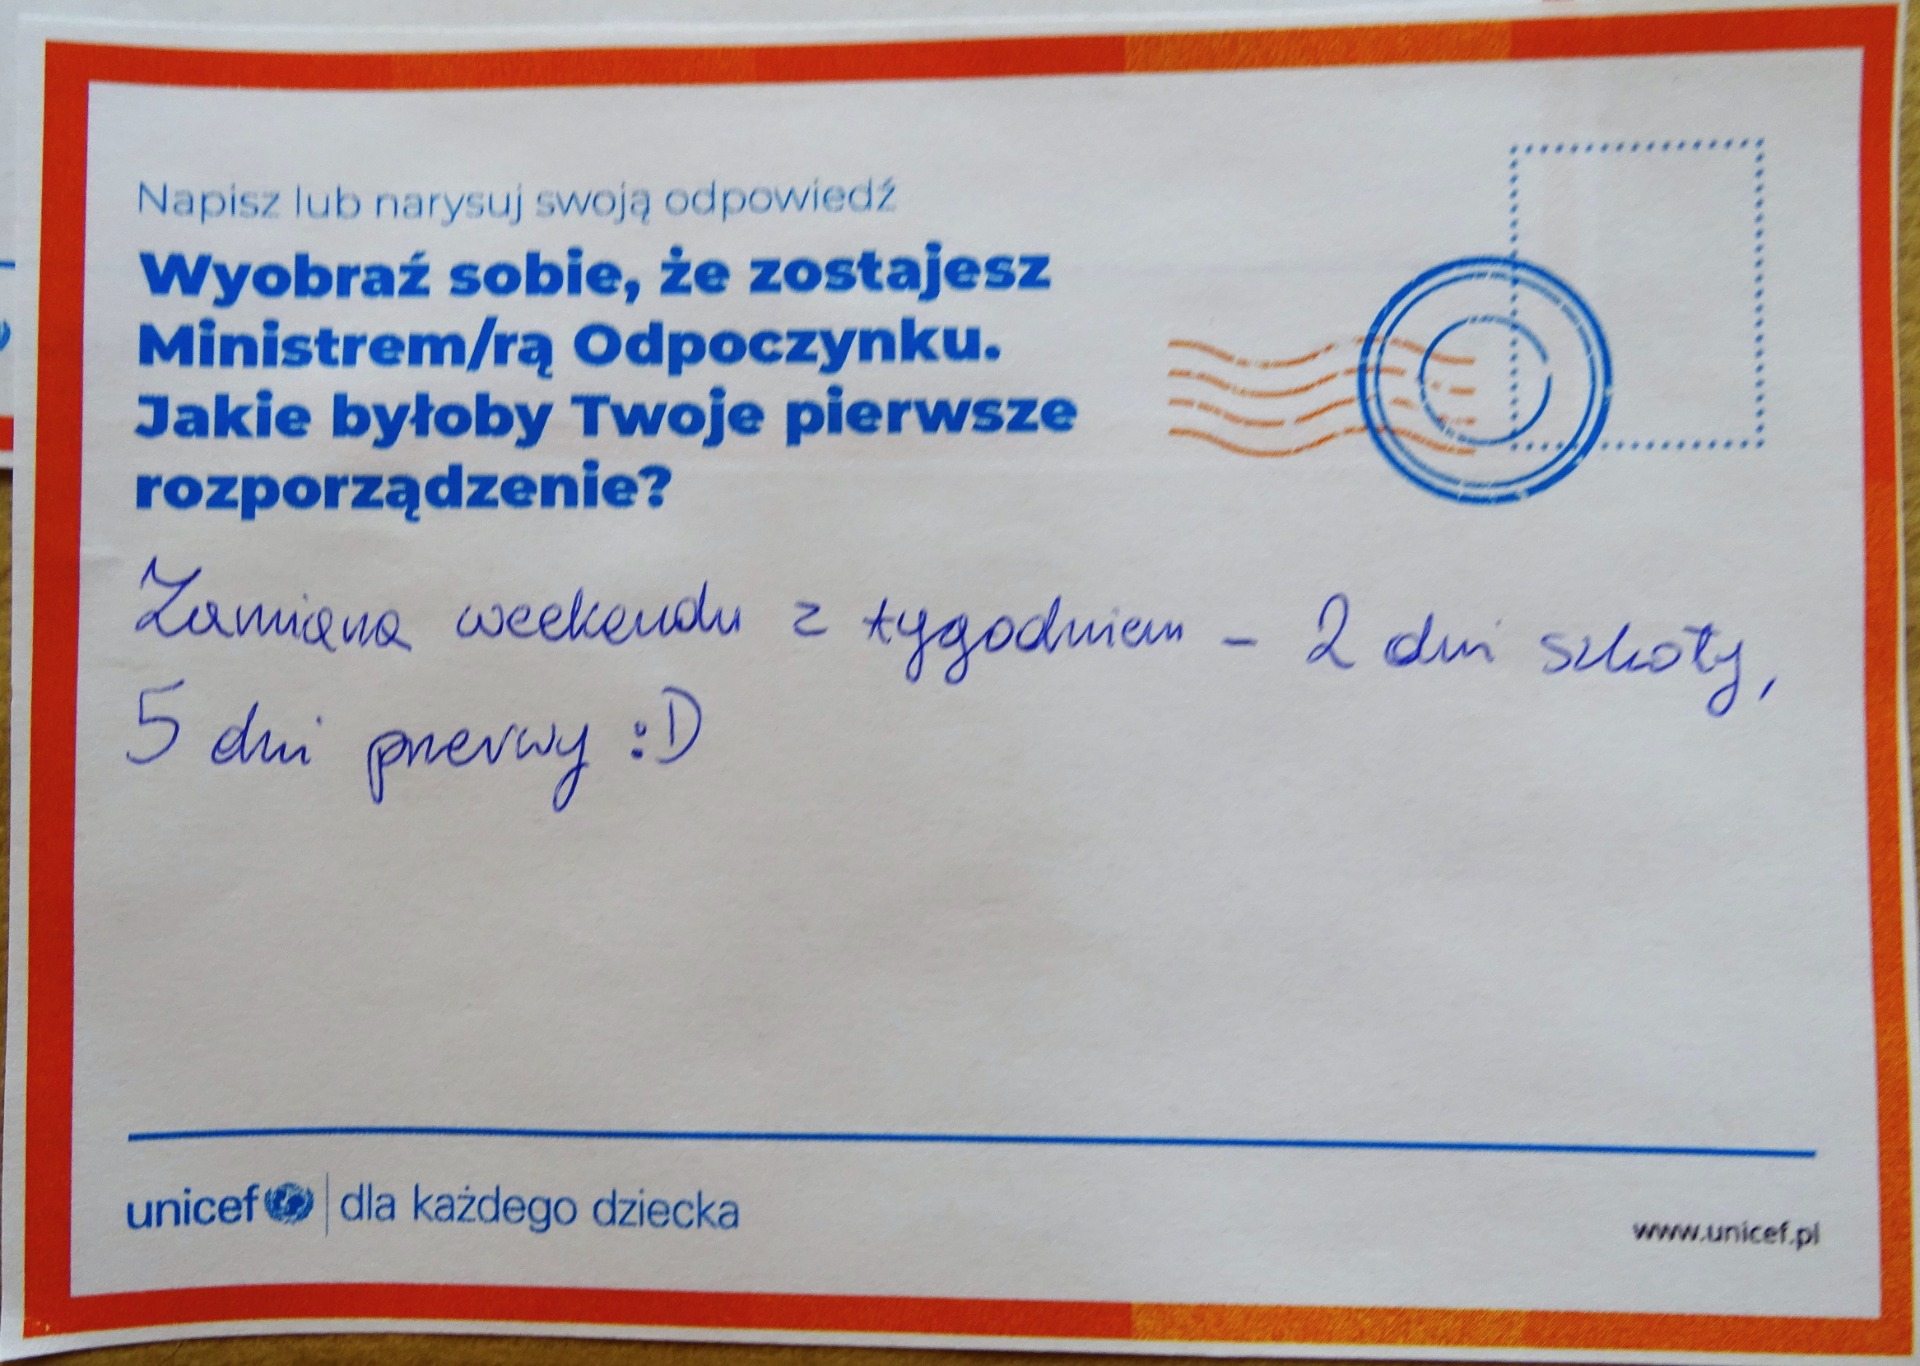 Napisz lub narysuj swoją odpowiedź
Wyobraź sobie, że zostajesz
Ministrem/rą Odpoczynku.
Jakie byłoby Twoje pierwsze
rozporządzenie?
Zamiana weekendu z tygodniem - 2 dni szkoły,
5 dni przerwy :D
unicef dla każdego dziecka
www.unicef.pl